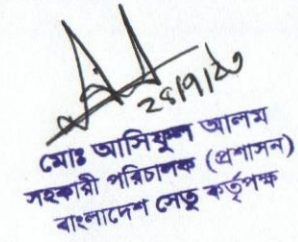 মোঃ আসিফুল আলম
সহকারী পরিচালক (প্রশাসন)
বাংলাদেশ সেতু কর্তৃপক্ষ